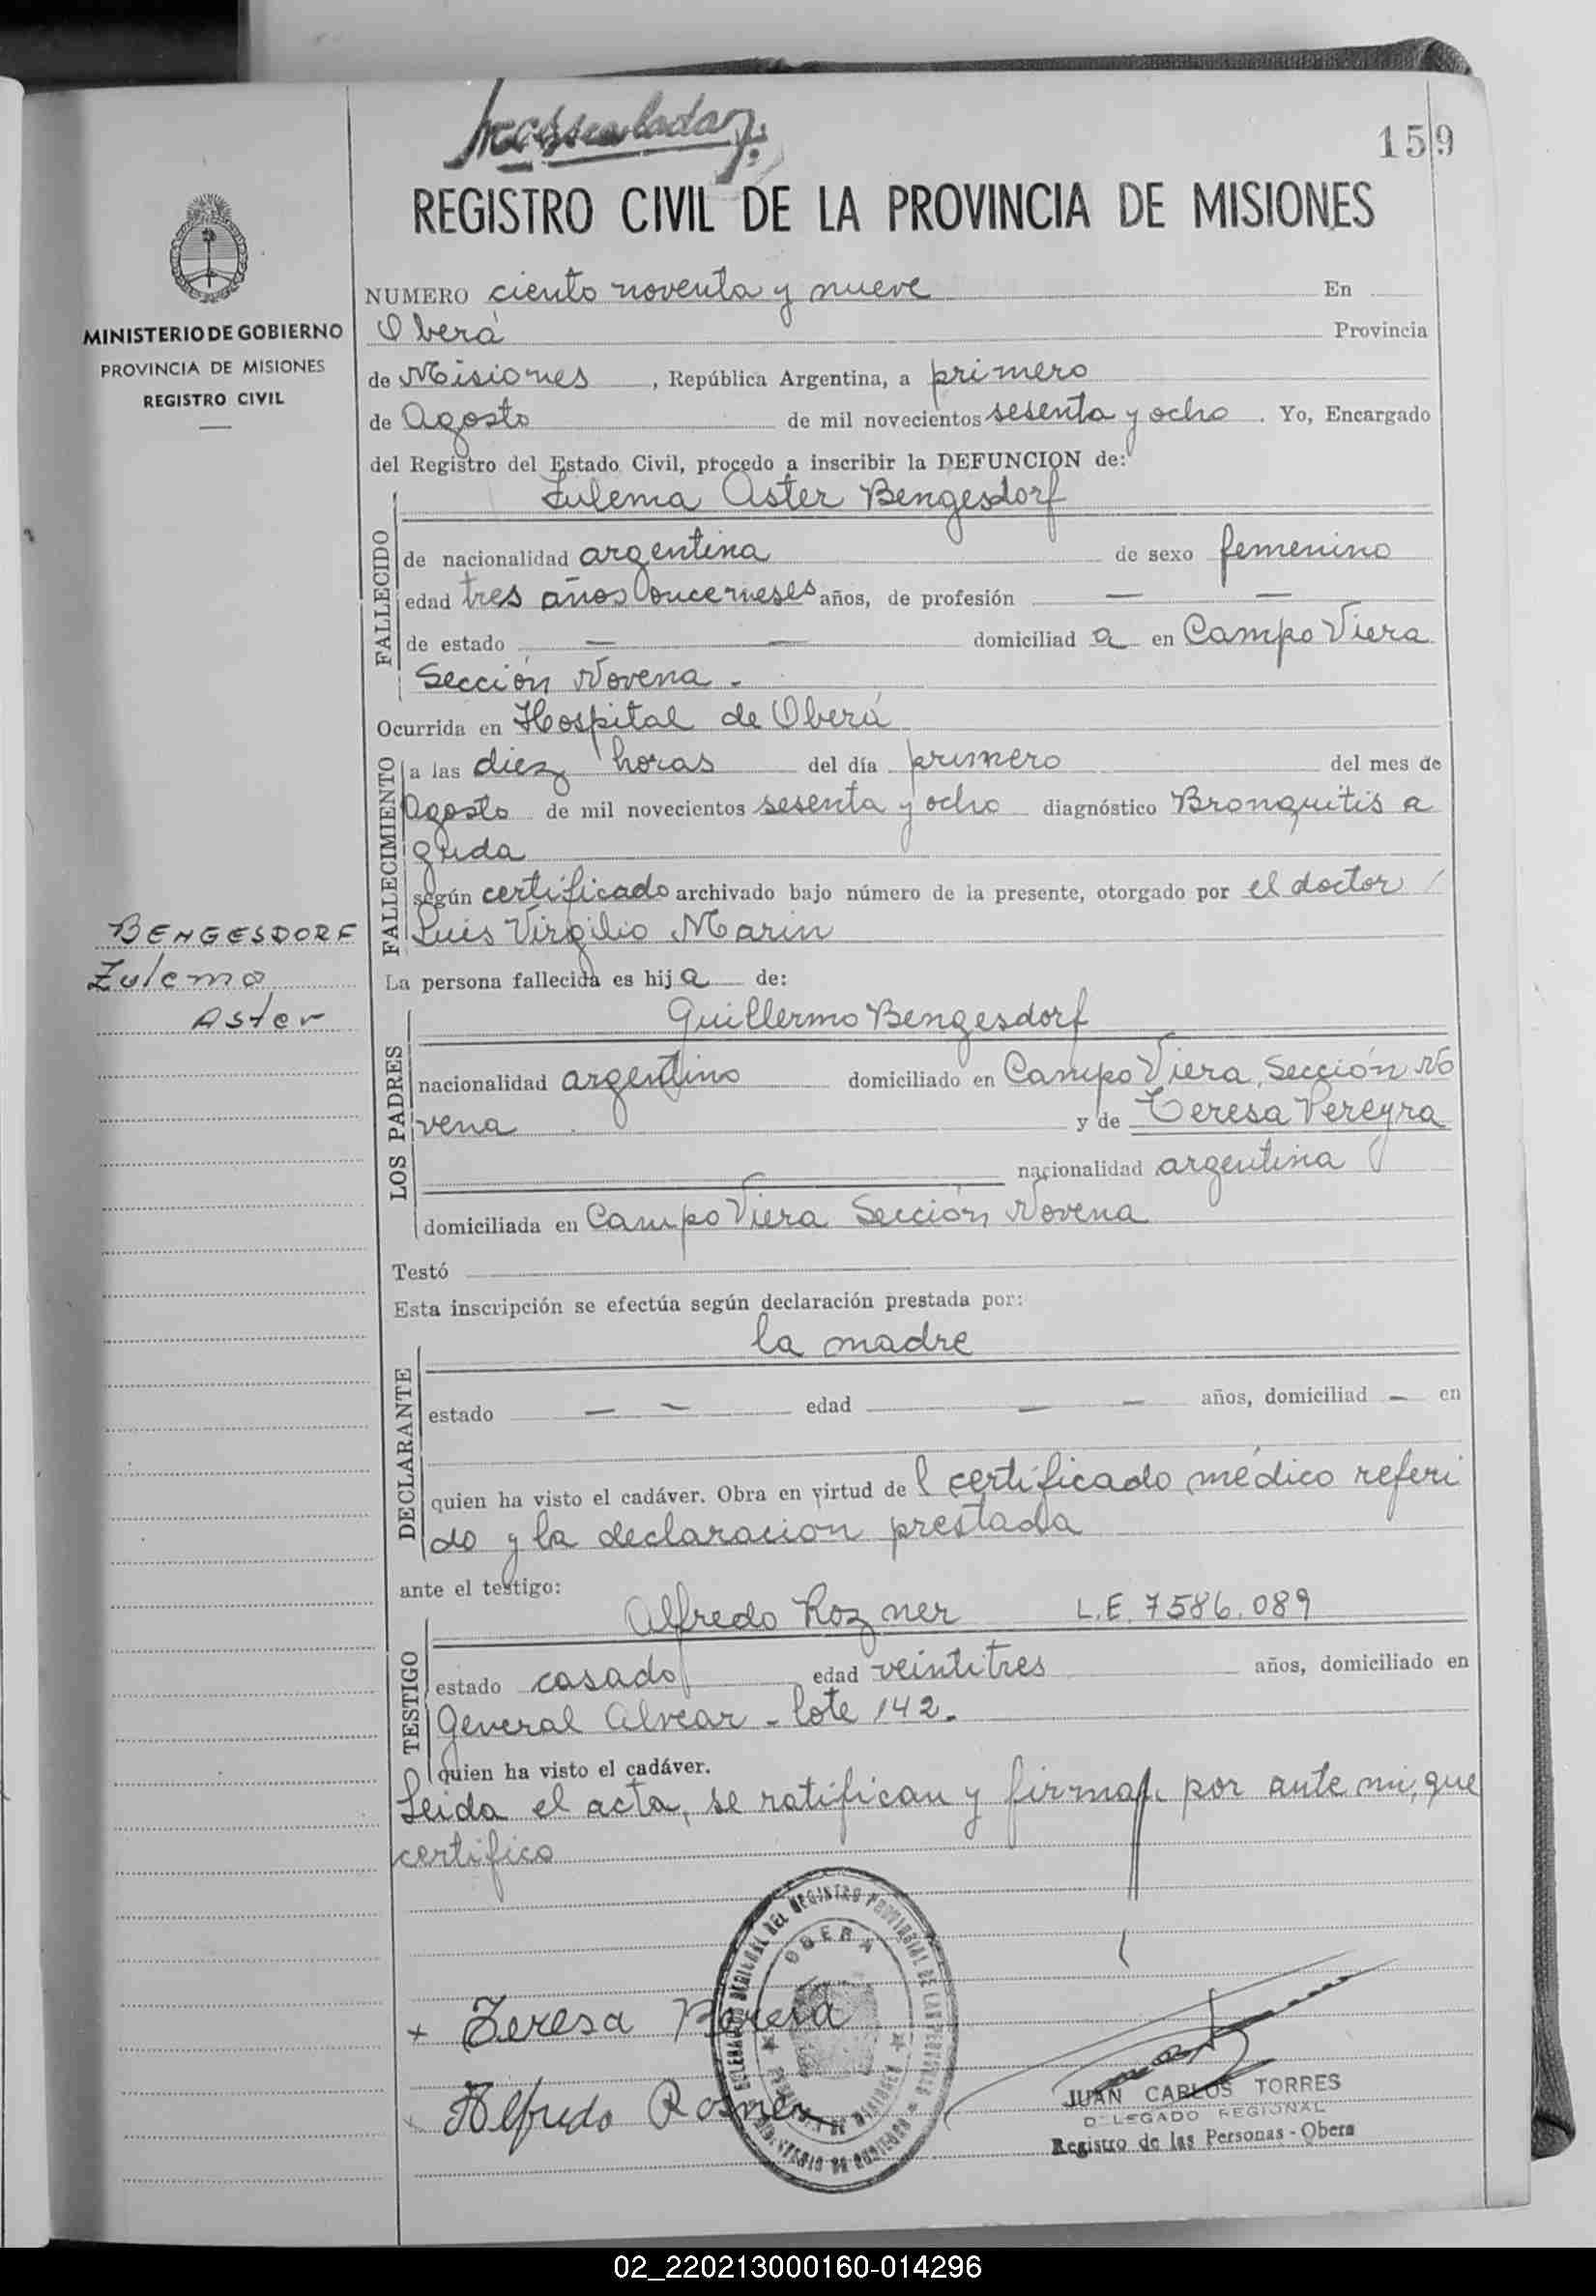 159
REGISTRO CIVIL DE LA PROVINCIA DE MISIONES
MINISTERIO DE GOBIERNO
PROVINCIA DE MISIONES
REGISTRO CIVIL
NUMERO ciento noventa y nueve En
Oberá Provincia
de Misiones, República Argentina, a primero
de Agosto de mil novecientos sesenta y ocho. Yo, Encargado
del Registro del Estado Civil, procedo a inscribir la DEFUNCION de:
Zulema Aster Bengesdorf
FALLECIDO
de nacionalidad argentina de sexo femenino
edad tres años once meses años, de profesión — —
de estado — — domiciliad a en Campo Viera
Sección Novena.-
Ocurrida en Hospital de Oberá
FALLECIMIENTO
a las diez horas del día primero del mes de
Agosto de mil novecientos sesenta y ocho diagnóstico Bronquitis a
guda
según certificado archivado bajo número de la presente, otorgado por el doctor /
Luis Virgilio Marin
BENGESDORF
Zulema
Aster
La persona fallecida es hij a de:
Guillermo Bengesdorf
LOS PADRES
nacionalidad argentino domiciliado en Campo Viera, Sección No
vena y de Teresa Pereyra
nacionalidad argentina
domiciliada en Campo Viera Sección Novena
Testó
Esta inscripción se efectúa según declaración prestada por:
la madre
DECLARANTE
estado — — edad — — años, domiciliad — en
quien ha visto el cadáver. Obra en virtud de l certificado médico referi
do y la declaración prestada
ante el testigo:
Alfredo Rozner L.E. 7586.089
TESTIGO
estado casado edad veintitres años, domiciliado en
General Alvear - lote 142.-
quien ha visto el cadáver.
Leida el acta, se ratifican y firman por ante mi, que
certifico
OBERA
+ Teresa Pereira
+ Alfredo Rosner
JUAN CARLOS TORRES
DELEGADO REGIONAL
Registro de las Personas - Obera
02_220213000160-014296